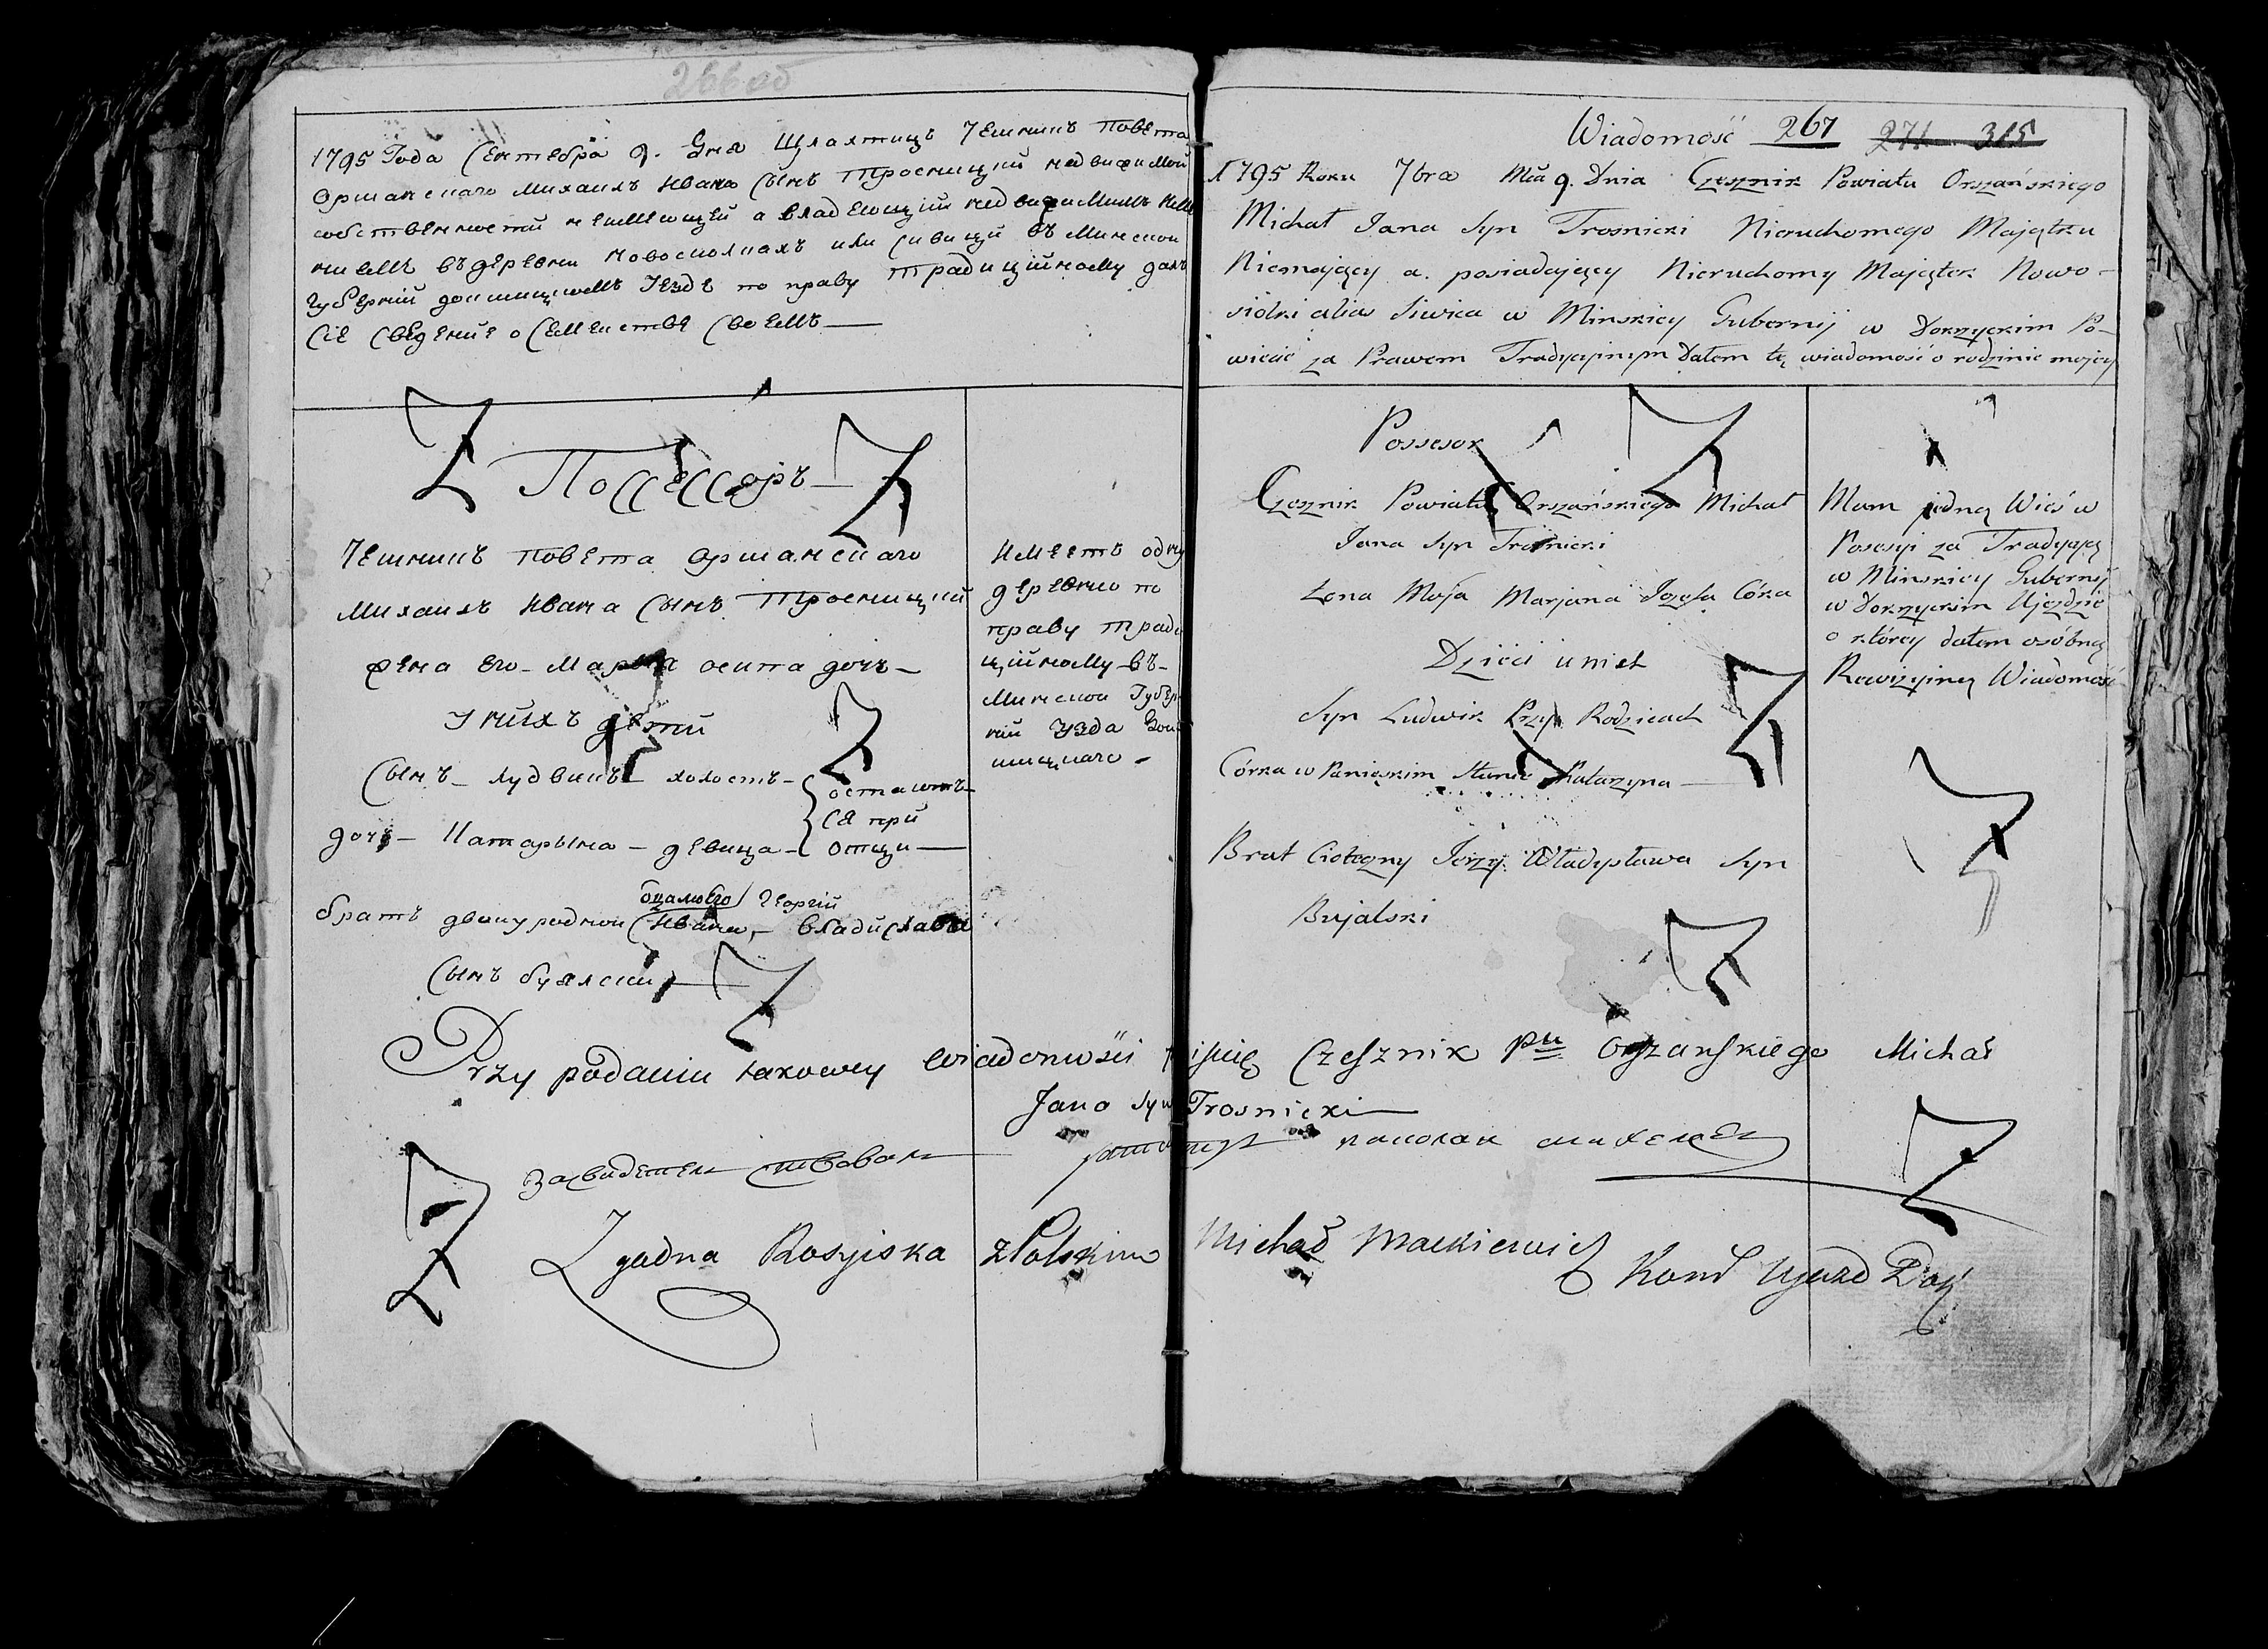 266 об
1795 Года Сентебра 9. Дня Шляхтичъ Чешникъ Повета
Оршанскаго Михаилъ Ивана Сынъ Тросницкий недвижимой
собственности неимеющей а владеющий недвижимымъ име
ниемъ въ деревни Новоселкахъ или Сивици въ Минской
Губерний докшицкомъ Уезде по праву традицийному далъ
Сие Сведение о Семействе Своемъ
Поссессоръ
Чешникъ Повета Оршанскаго
Михаилъ Ивана Сынъ Тросницкий
жена его Марья осипа дочь
У нихъ дети
Сынъ Лудвикъ холостъ
остают
ся при
отци
дочь Катарына девица
Георгий
братъ двоюродной Ивана Владислава
Сынъ буялский
Имеетъ одну
деревню по
праву тради
цийному въ
Минской Губер
ний Уезда Док
шицкаго
Wiadomość 267 271 315
1795 Roku 7bra Mca 9. Dnia Czesznik Powiatu Orszańskiego
Michał Jana Syn Trosnicki Nieruchomego Majątku
Niemający a. posiadający Nieruchomy Majątek Nowo-
siołki alias Siwica w Minskiey Gubernij w Dokszyckim Po-
wiecie za Prawem Tradycyinym Dałem tę wiadomość o rodzinie mojey
Possesor
Czesznik Powiatu Orszańskiego Michał
Jana Syn Trosnicki
Żona Moja Marjana Jozefa Córka
Dzieci u nich
Syn Ludwik Przy Rodzicach
Córka w Panieńskim Stanie Katarzyna
Brat Cioteczny Jerzy Władysława Syn
Bujalski
Mam jedną Wieś w
Posesyi za Tradycyą
w Minskiey Gubernij
w Dokszyckim Ujezdzie
o którey dałem osóbną
Rewizyiną Wiadomość
Przy podaniu takowey wiadomości piszię Czesznik ptu Orszanskiego Michał
Jana Syn Trosnicki
Засвидетельствовал
Zgodna Rosyiska z Polskim Michał Mackiewicz